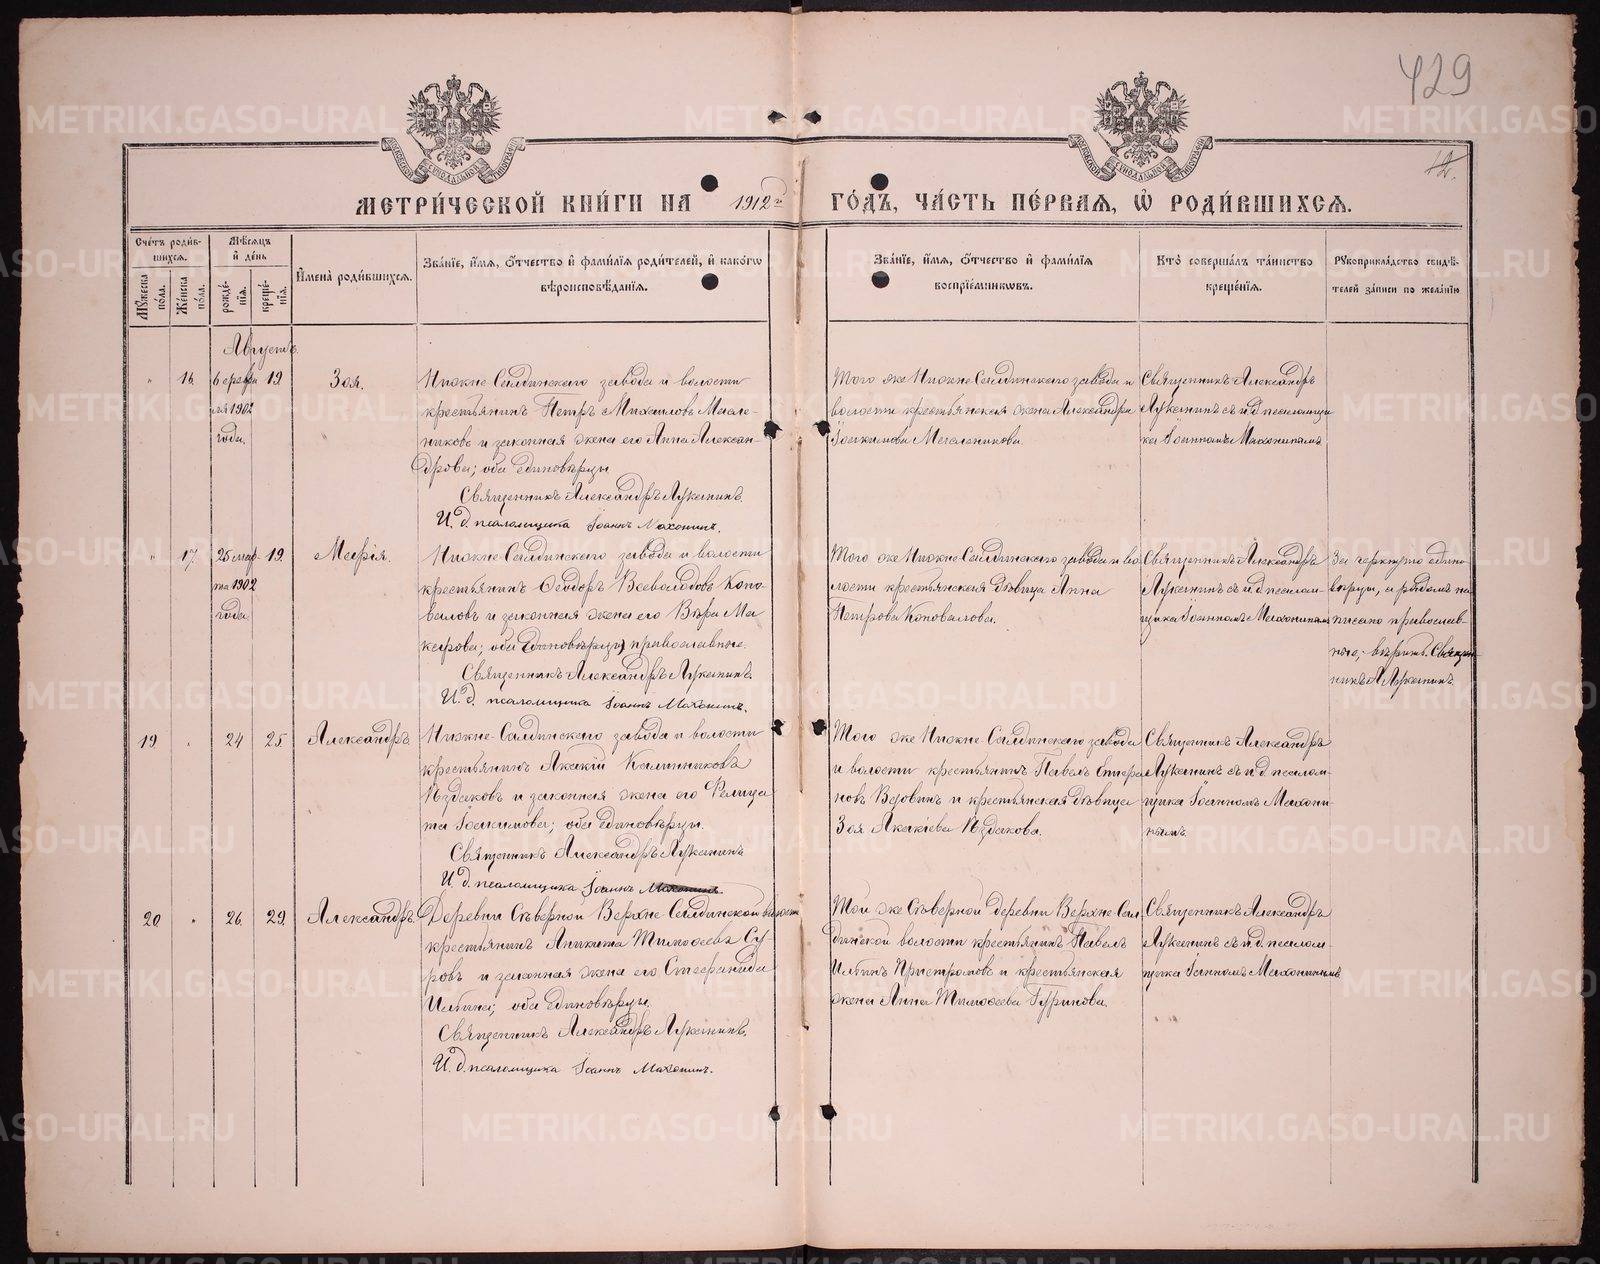 429
12.
МЕТРИ́ЧЕСКОЙ КНИ́ГИ НА 1912 й ГО́ДЪ, ЧА́СТЬ ПЕ́РВАЯ, Ѡ РОДИ́ВШИХСЯ.
Сче́тъ роди́в-
шихся.
Мꙋжеска по́ла.
Же́нска по́ла.
Мѣ́сяцъ и де́нь
рожде́-
нїя.
креще́-
нїя.
И҆мена̀ роди́вшихся.
Зва́нїе, и҆́мя, ѻ҆́тчество и҆ фами́лїя роди́телей, и҆ како́гѡ
вѣроисповѣ́данїя.
Зва́нїе, и҆́мя, ѻ҆́тчество и҆ фами́лїя
воспрїе́мниковъ.
Кто̀ соверша́лъ та́инство
креще́нїя.
Рꙋкоприкла́дство свидѣ́-
телей за́писи по жела́нїю
Августъ.
" 16. 6 февра- 19 Зоя.
ля 1902
года.
Нижне-Салдинскаго завода и волости
крестьянинъ Петръ Михаиловъ Масле-
никовъ и законная жена его Анна Алексан-
дрова; оба единовѣрцы.
Священникъ Александръ Луканинъ.
И. д. псаломщика Іоаннъ Махонинъ.
Того же Нижне-Салдинскаго завода и
волости крестьянская жена Александра
Іоакимова Масленикова.
Священникъ Александръ
Луканинъ съ и.д. псаломщи
ка Іоанномъ Махонинымъ
" 17. 25 мар- 19. Марія.
та 1902
года.
Нижне-Салдинскаго завода и волости
крестьянинъ Ѳеодоръ Всеволодовъ Коно-
валовъ и законная жена его Вѣра Ма
карова; оба единовѣрцы православные.
Священникъ Александръ Луканинъ.
И. д. псаломщика Іоаннъ Махонинъ.
Того же Нижне-Салдинскаго завода и во
лости крестьянская дѣвица Анна
Петрова Коновалова.
Священникъ Александръ
Луканинъ съ и.д. псалом-
щика Іоанномъ Махонинымъ
Зачеркнуто едино-
вѣрцы, а рядомъ на
писано православ-
ные,- вѣрить. Священ-
никъ А Луканинъ.
19 " 24 25 Александръ
Нижне-Салдинскаго завода и волости
крестьянинъ Акакій Калинниковъ
Пздаковъ и законная жена его Фелица
та Іоакимова; оба единовѣрцы.
Священникъ Александръ Луканинъ
И. д. псаломщика Іоаннъ Махонинъ.
Того же Нижне-Салдинскаго завода
и волости крестьянинъ Павелъ
новъ и крестьянская дѣвица
Зоя Акакіева Пздакова.
Священникъ Александръ
Луканинъ съ и.д. псалом-
щика Іоанномъ Махони-
нымъ.
20 " 26. 29. Александръ.
Деревни Сѣверной Верхне-Салдинской волости
крестьянинъ Аникита Тимоѳеевъ Су-
ровъ и законная жена его Стефанида
Ильина; оба единовѣрцы.
Священникъ Александръ Луканинъ.
И. д. псаломщика Іоаннъ Махонинъ.
Той же Сѣверной деревни Верхне-Сал
динской волости крестьянинъ Павелъ
Ильинъ Пристромовъ и крестьянская
жена Анна Тимоѳеева Гуринова.
Священникъ Александръ
Луканинъ съ и.д. псалом-
щика Іоанномъ Махонинымъ
METRIKI.GASO-URAL.RU